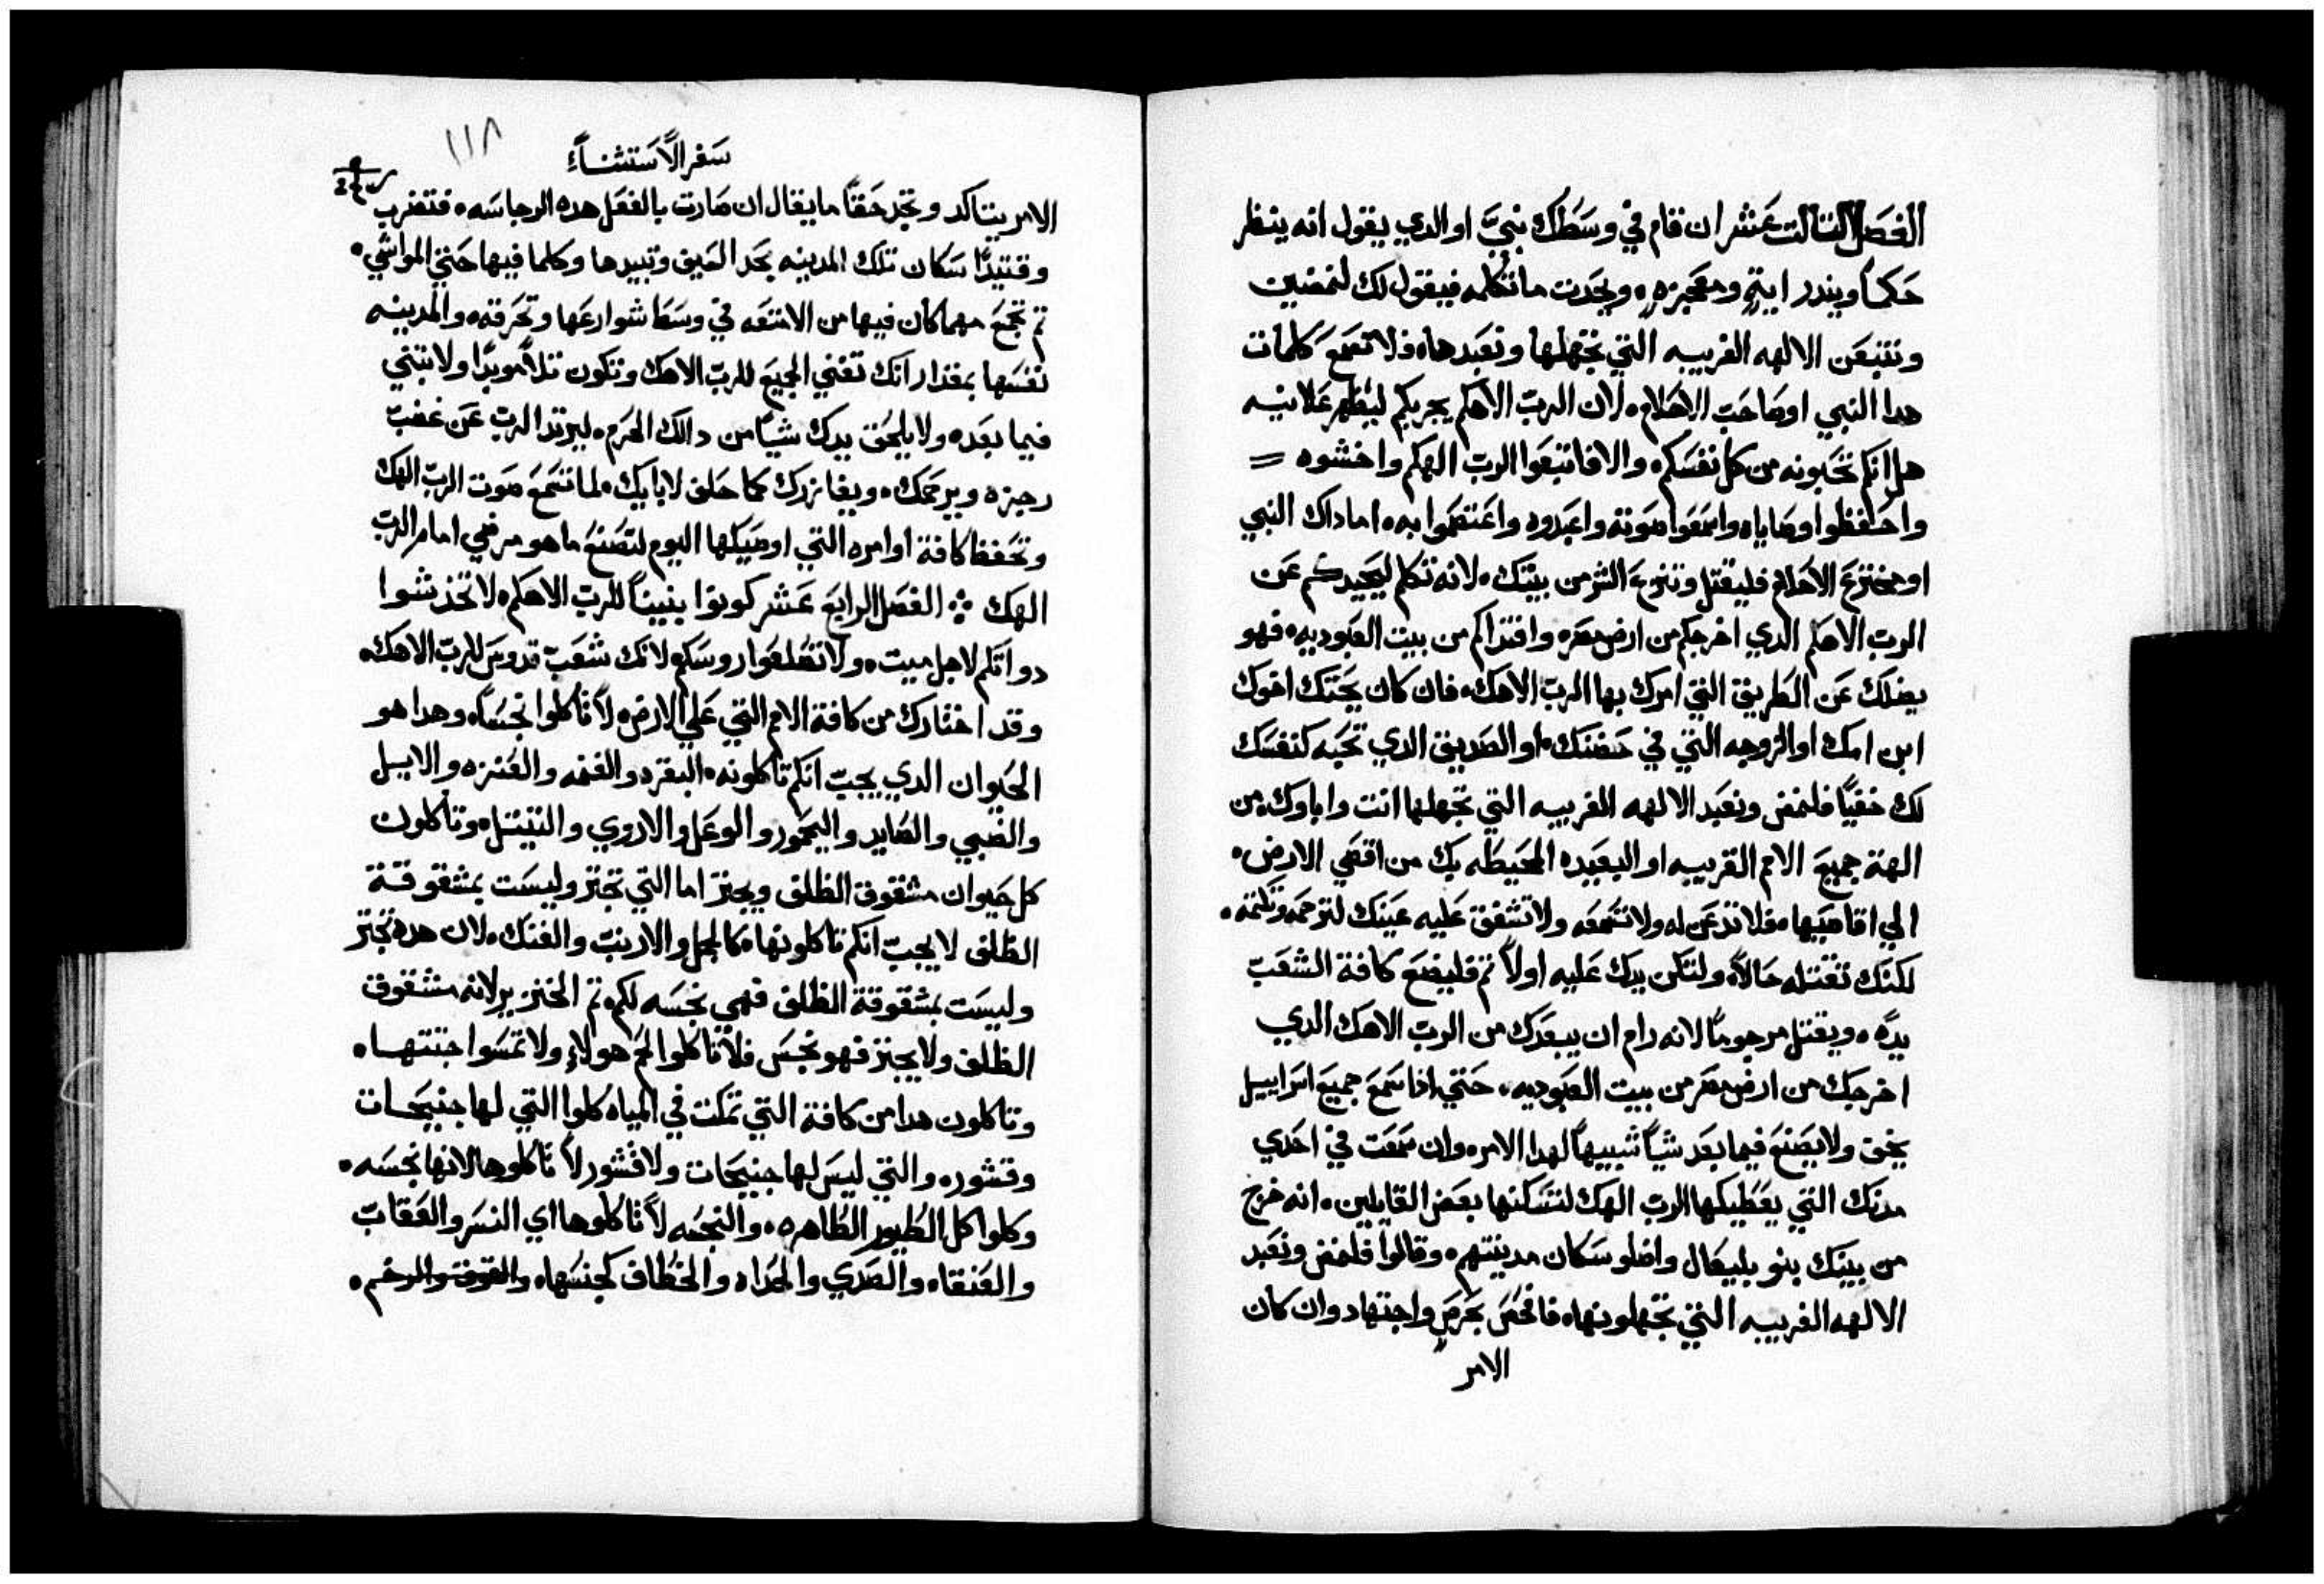 الفصل الثالث عشر ان قام في وسطك نبيّ او الدي يقول انه ينظر
حكماً ويندر اية ومعجزه، ويحدت ما تكلمه فيقول لك لنمضين
ونتبعن الالهه الغريبه التي تجهلها ونعبدها، فلا تسمع كلمات
هدا النبي او صاحب الاحلام، لان الرب الاهكم يجربكم ليظهر علانيه
هل انكم تحبونه من كل نفسكم، والا فاتبعوا الرب الهكم واخشوه =
واحفظوا وصاياه واسمعوا صوته واعبدوه واعتصموا به، اما داك النبي
او مخترع الاحلام فليقتل وتنزع الشر من بينك، لانه تكلم ليحيدكم عن
الرب الاهكم الدي اخرجكم من ارض مصر، وافتداكم من بيت العبوديه، فهو
يضلك عن الطريق التي امرك بها الرب الاهك، فان كان يحتك اخوك
ابن امك، او الزوجه التي في حضنك، او الصديق الدي تحبه كنفسك
لك خفيّاً فلنمض ونعبد الالهه الغريبه التي تجهلها انت واباوك، من
الهة جميع الامم القريبه او البعيده المحيطه بك من اقصي الارض،
الي اقاصيها، فلا تدعن له ولا تسمعه ولا تشفق عليه عينك لترحمه وتكتمه،
لكنك تقتله حالاً، ولتكن يدك عليه اولاً تم فليضع كافة الشعب
يده، ويقتل مرجوماً لانه رام ان يبعدك من الرب الاهك الدي
اخرجك من ارض مصر من بيت العبوديه، حتي اذا سمع جميع اسراييل
يخف ولا يصنع فيما بعد شياً شبيهاً لهدا الامر، وان سمعت في احدي
مدنك التي يعطيكها الرب الهك لتسكنها بعض القايلين، انه خرج
من بينك بنو بليعال واضلو سكان مدينتهم، وقالوا فلنمض ونعبد
الالهه الغريبه التي تجهلونها، فافحص بحرص واجتهاد وان كان
الامر
سفر الاستثناء
١١٨
الامر يتاكد وتجد حقاً ما يقال ان صارت بالفعل هده الرجاسه، فتضرب
وقتيدًا سكان تلك المدينه بحد السيف وتبيدها وكلما فيها حتي المواشي،
تم تجمع مهما كان فيها من الامتعه في وسط شوارعها وتحرقه، والمدينه
نفسها بمقدار انك تفني الجميع للرب الاهك وتكون تلاً موبدًا ولا تبتني
فيما بعد، ولا يلحق يدك شياً من دالك الحرم، ليرتد الرب عن غضب
رجزه ويرحمك، ويغازرك كما حلف لابايك، لما تسمع صوت الرب الهك
وتحفظ كافة اوامره التي اوصيكها اليوم لتصنع ما هو مرضي امام الرب
الهك ፨ الفصل الرابع عشر كونوا بنيناً للرب الاهكم، لا تخدشوا
دواتكم لاجل ميت، ولا تصلعوا روسكم لانك شعب قدوس للرب الاهك،
وقد اختارك من كافة الامم التي علي الارض، لا تاكلوا نجساً، وهدا هو
الحيوان الدي يجب انكم تاكلونه، البقر، والغنم، والعنزه والايل
والضبي والصايد واليحمور والوعل والاروي والتيتل، وتاكلون
كل حيوان مشقوق الظلف ويجتز اما التي تجتز وليست بمشقوقة
الظلف لا يجب انكم تاكلونها، كالجمل والارنب والفنك، لان هده تجتز
وليست بمشقوقة الظلف فهي نجسه لكم، تم الخنزير لانه مشقوق
الظلف ولا يجتز فهو نجس فلا تاكلوا لحم هولاء ولا تمسوا جتتها،
وتاكلون هدا من كافة التي تمكت في المياه كلوا التي لها جنيحات
وقشور، والتي ليس لها جنيحات ولا قشور لا تاكلوها لانها نجسه،
وكلوا كل الطيور الطاهره، والنجسه لا تاكلوها اي النسر والعقاب
والعنقاء والصدي والحداه والخطاف كجنسها، والقوق والرخم،